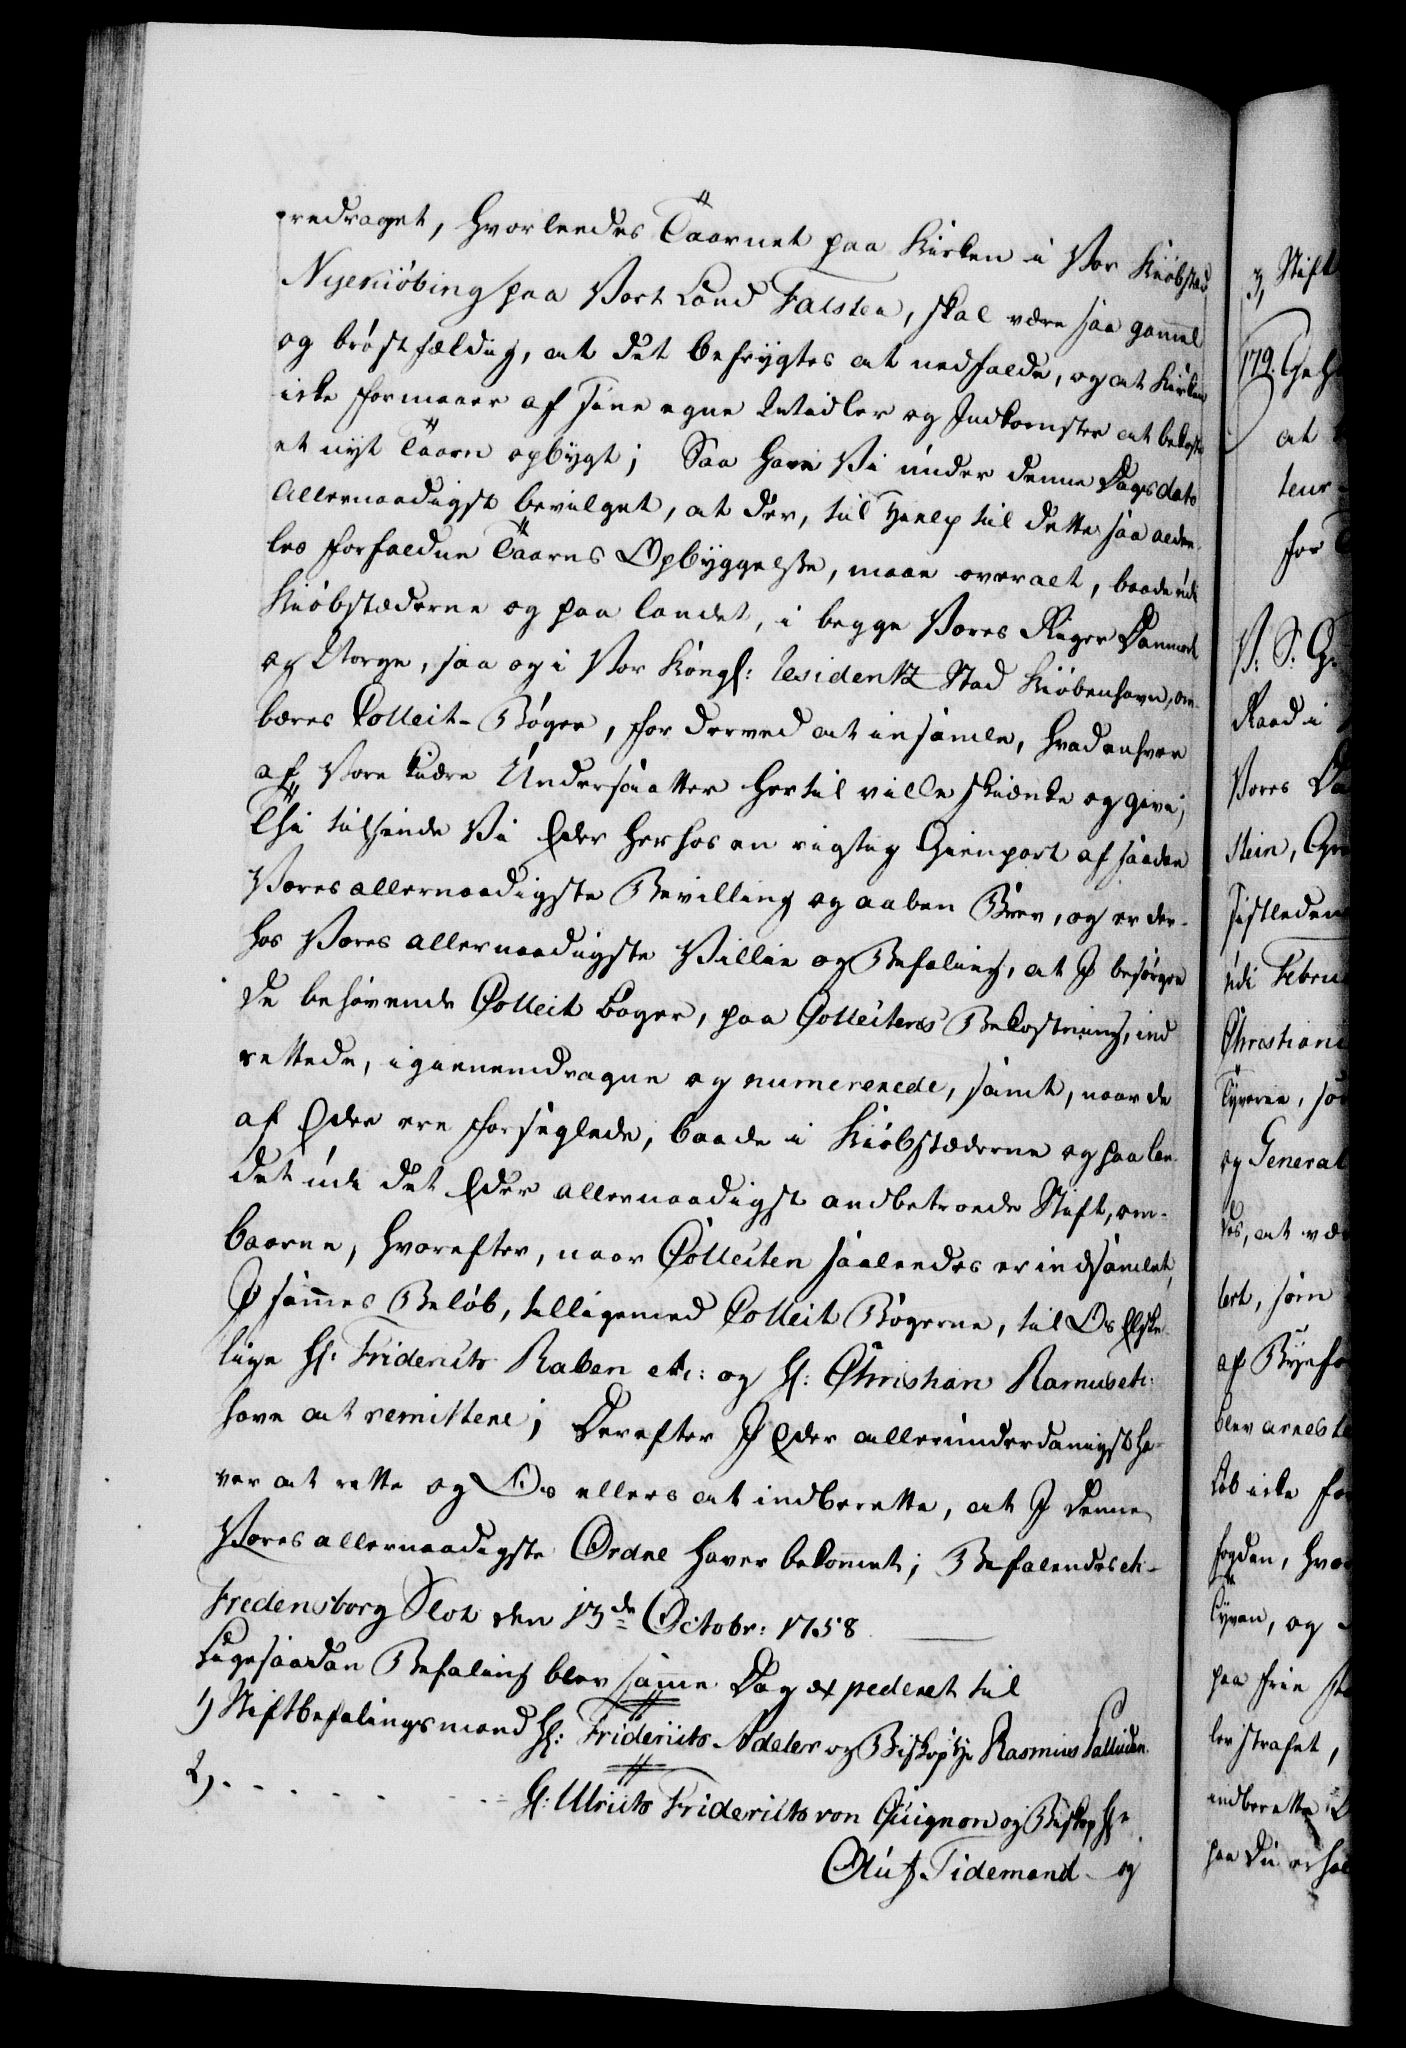 redraget, hvorleedes Taarnet paa Kirken i Vor Kiøbstad
Nyekiøbing paa Vort Land Falster, skal være saa gammel
og brøstfældig, at det befrygtes at nedfalde, og at Kirken
icke formaaer af sine egne Midler og Indkomster at bekoste
et nyt Taarn opbygt; Saa have Vi under denne Dags dato
Allernaadigst bevilget, at der, til Hielp til dette saa aldee-
les forfaldne Taarns Opbyggelse, maae overalt, baade udi
Kiøbstæderne og paa landet, i begge Vores Riger Danmark
og Norge, saa og i Vor Kongl: Residentz Stad Kiøbenhavn, om-
bæres Collect-Bøger, for derved at insamle, hvad enhver
af Vore kiære Undersaatter hertil ville skiænke og give;
Thi tilsende Vi Eder herhos en rigtig Gienpart af saadan
Vores allernaadigste Bevilling og aaben Brev, og er der-
hos Vores allernaadigste Villie og Befaling, at I besørger
de behøvende Collect bøger, paa Collectens Bekostning, ind
rettede, igiennemdragne og numererede, samt, naar de
af Eder ere forseglede, baade i Kiøbstæderne og paa lan-
det udi det Eder allernaadigst anbetroede Stift, om-
baarne, hvorefter, naar Collecten saaleedes er indsamlet,
I sammes Beløb, tilligemed Collect Bøgerne, til Os Elske-
lige Hr: Friderich Raben etc: og Hr: Christian Ramus etc:
have at remittere; Derefter I Eder allerunderdanigst ha-
ver at rette og Os ellers at indberette, at I denne
Vores allernaadigste Ordre haver bekommet; Befalendes etc
Fredensborg Slot den 13de Octobr: 1758.
Ligesaadan Befaling blev samme Dag expederet til
1) Stiftbefalingsmand Hr: Friderich Adeler og Biskop Hr Rasmus Palludan.
2) . . . . . . . Hr: Ulrich Friderich von Cuignon og Biskop Hr
Oluf Tidemand og
3, Stift
179.
at
teur
for
V: S: G:
Raad i
Vores
stein,
sistleden
udi Febru
Christian
Tyverie,
og General
des, at
lert, som
af Byefo
blev areste
icke
fogden,
Tyven, og
paa frie
ler straffet,
indberette
paa Du